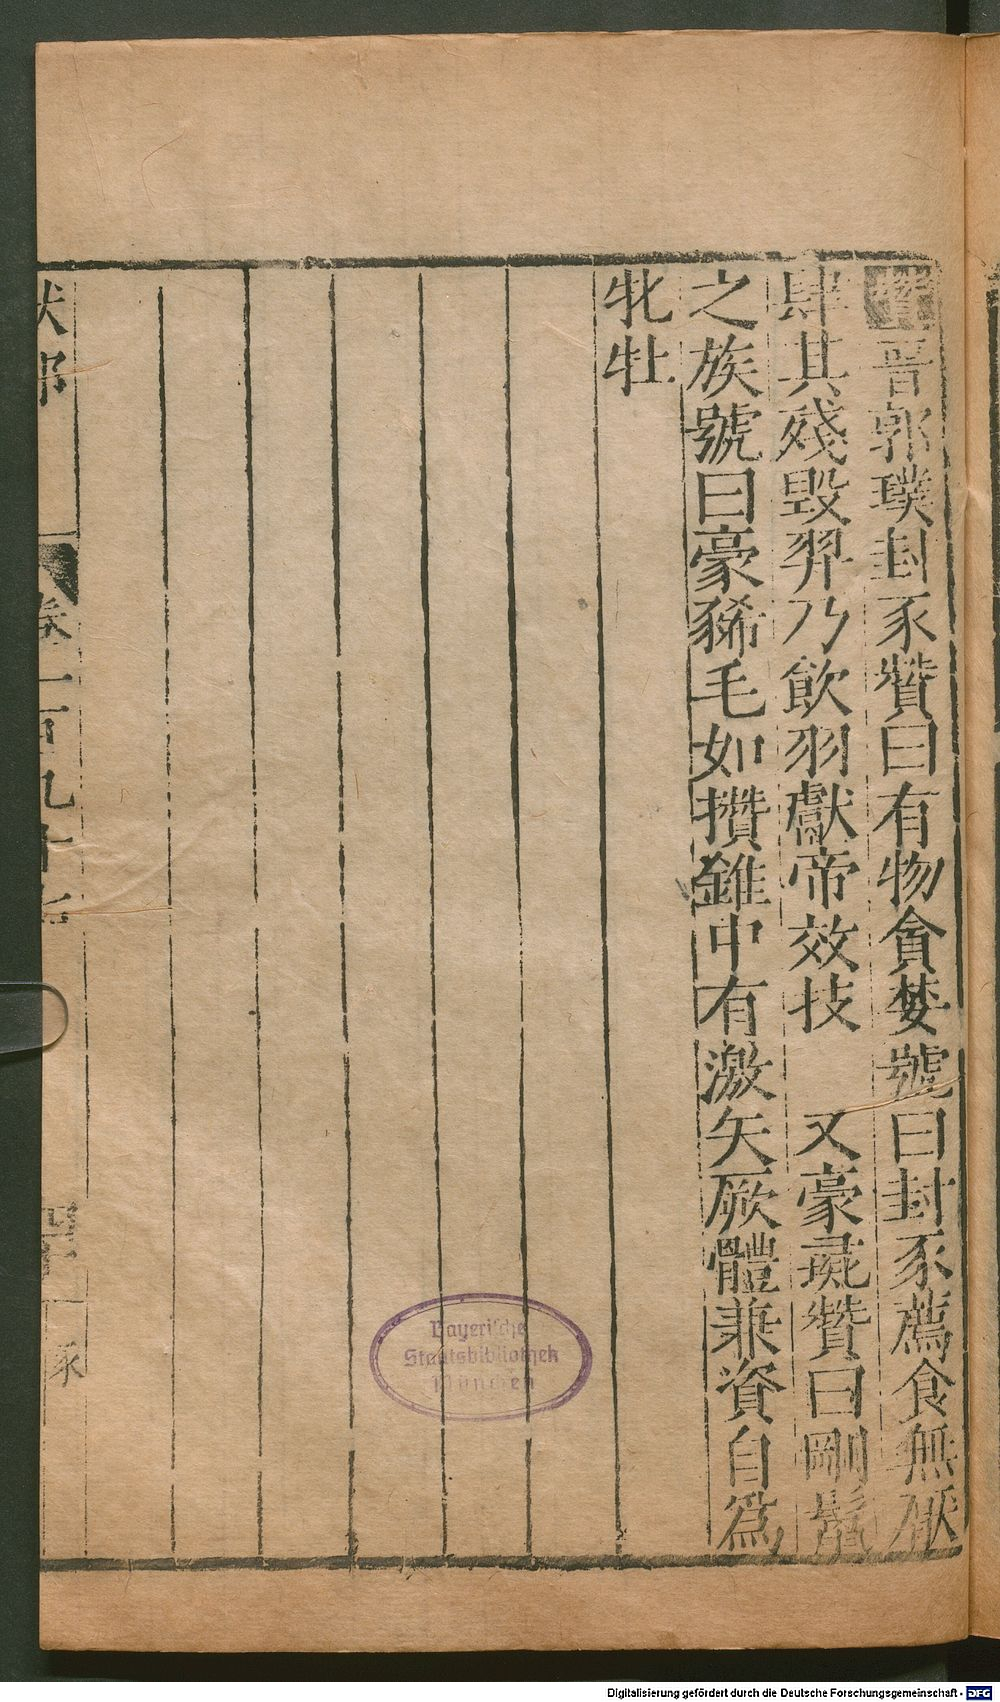 贊晉郭璞封豕贊曰有物貪婪號曰封豕薦食無厭
肆其殘毀羿乃飲羽獻帝效技 又豪彘贊曰剛鬣
之族號曰豪豨毛如攢錐中有激矢厥體兼資自爲
牝牡
卷一百九十七
豕
Bayerische
Staatsbibliothek
München
Digitalisierung gefördert durch die Deutsche Forschungsgemeinschaft - DFG